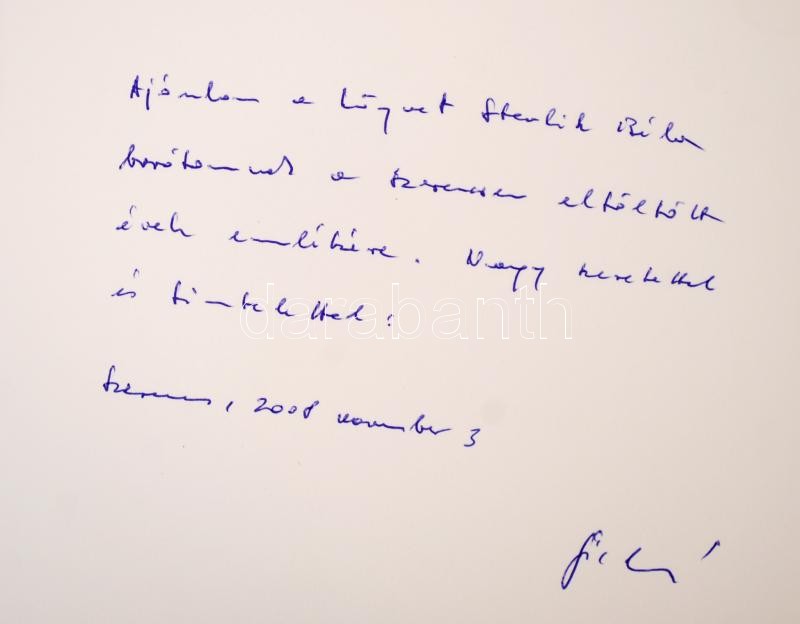 Ajánlom a könyvet Sterlik Béla
barátomnak a szerencsen eltöltött
évek emlékére. Nagy szeretettel
és tisztelettel:
darabanth
Szerencs, 2008 november 3